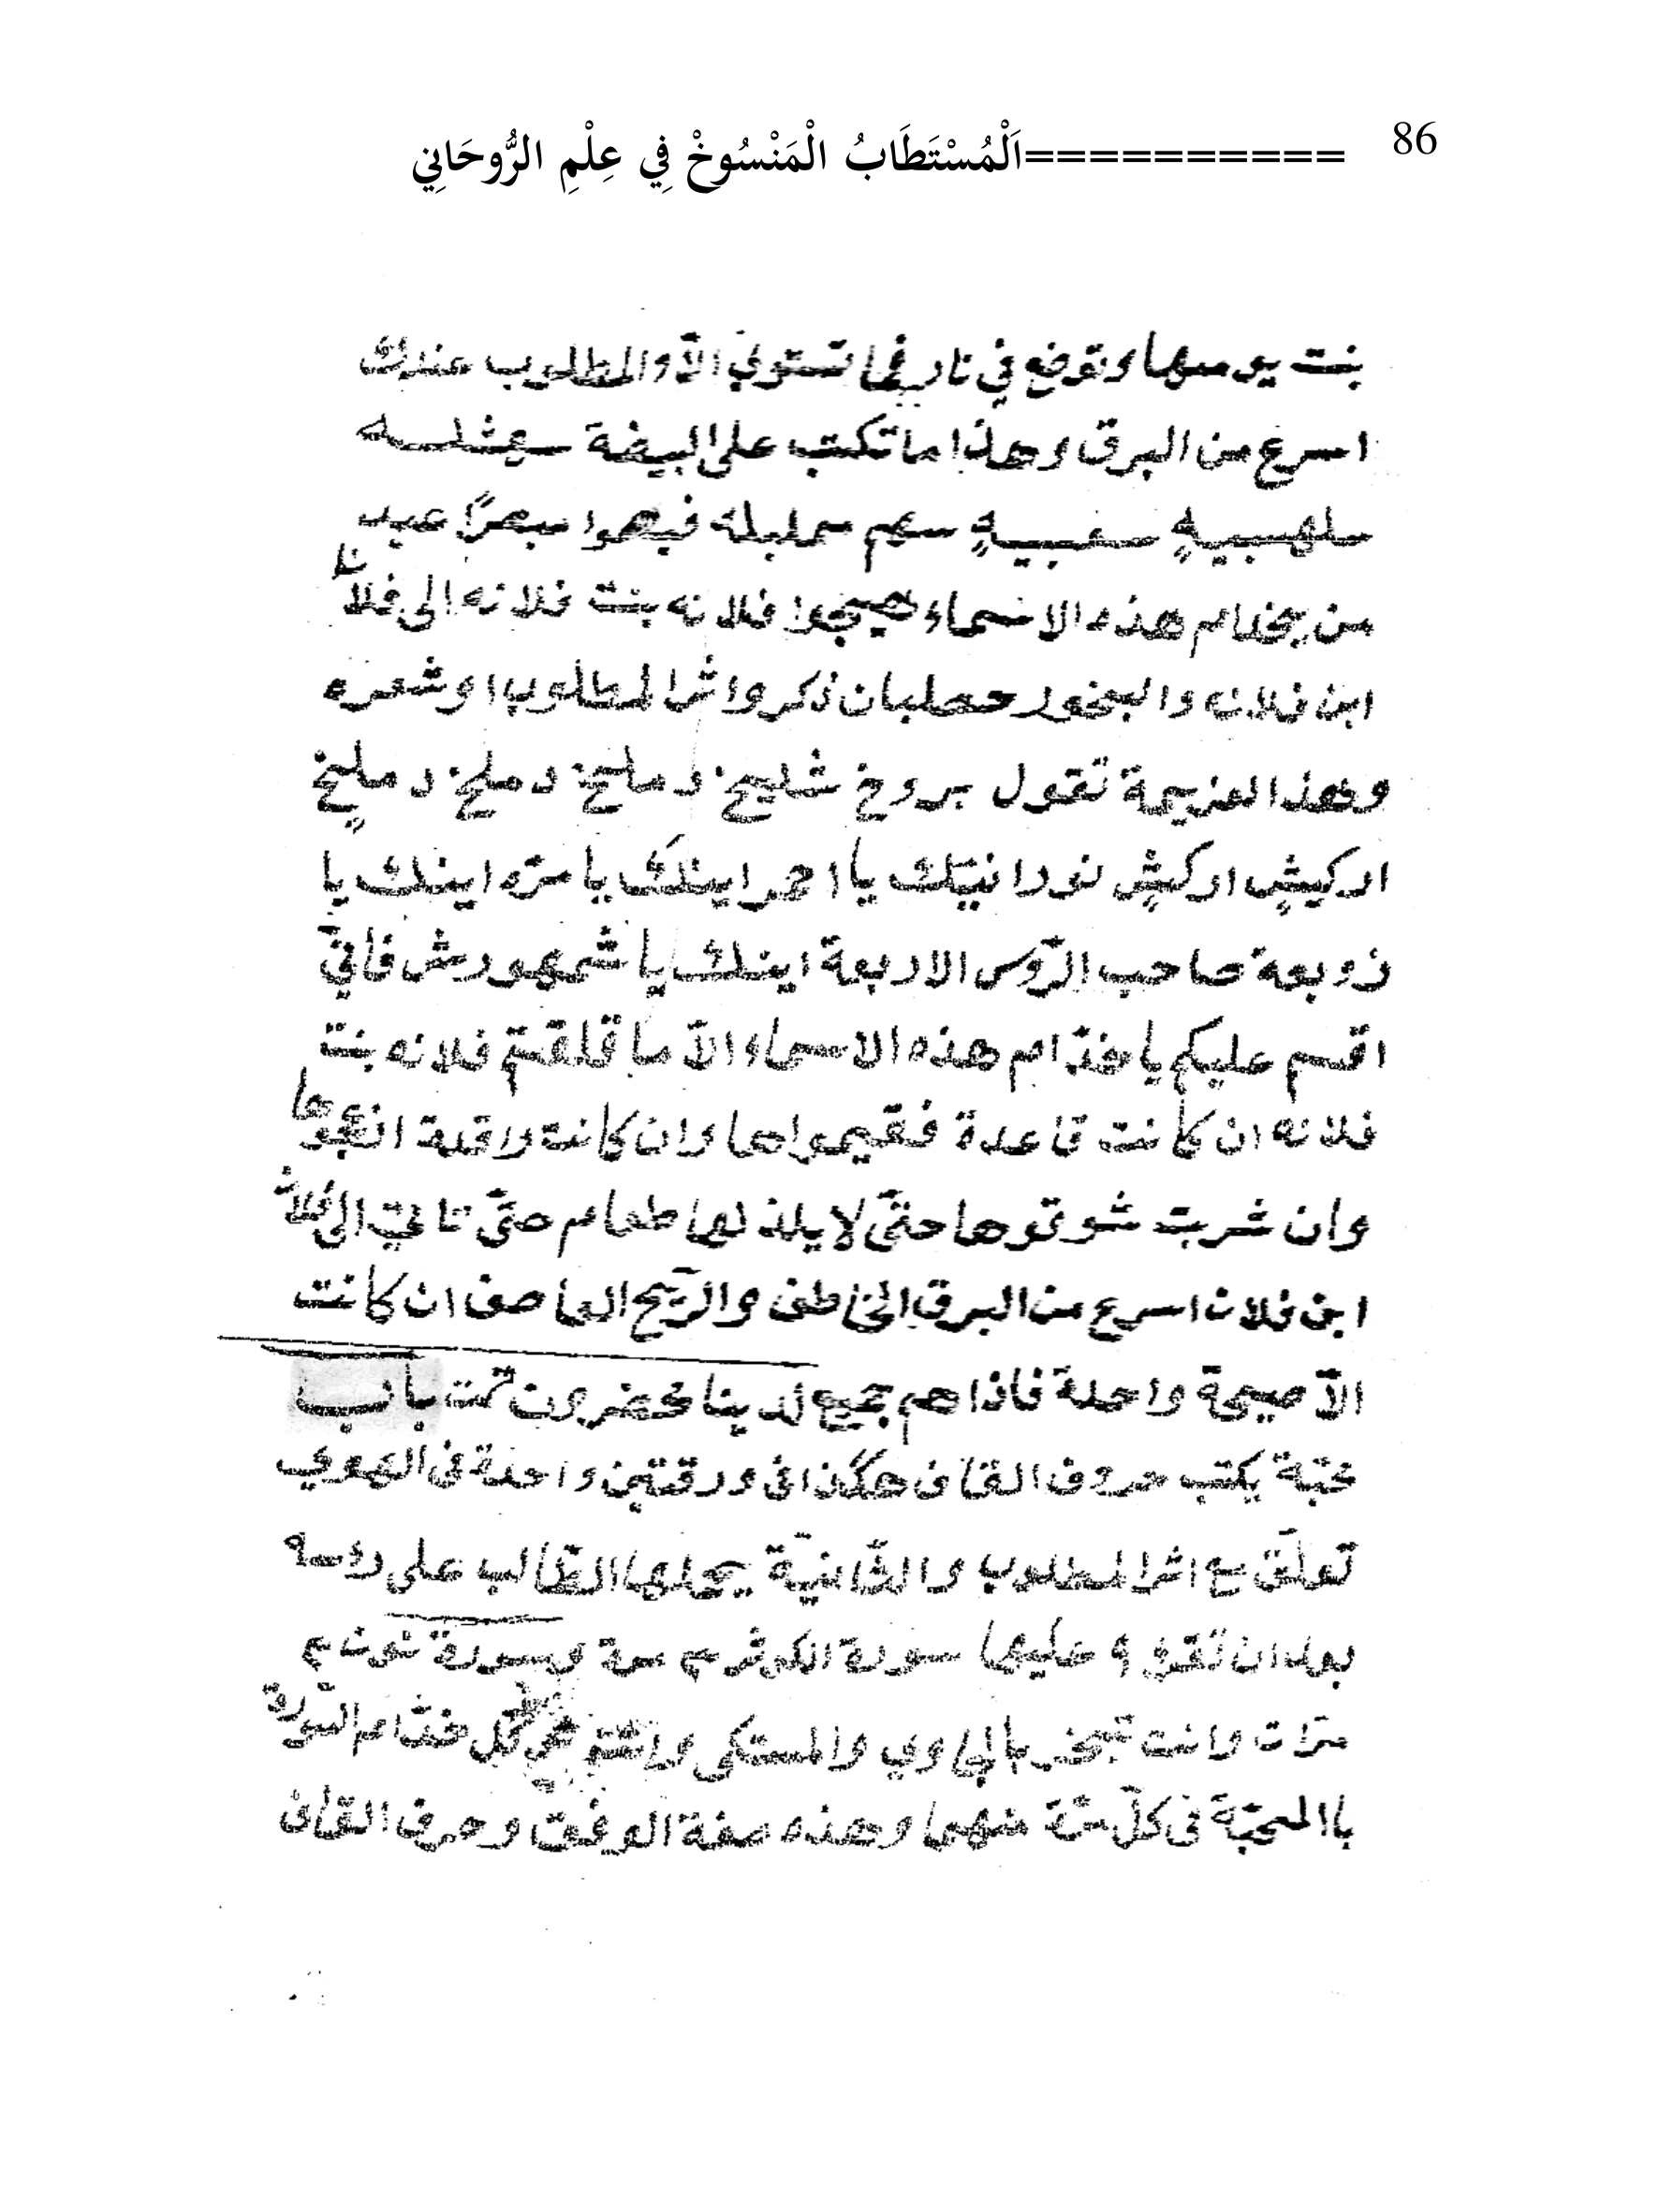 86
==========اَلْمُسْتَطَابُ الْمَنْسُوخْ فِي عِلْمِ الرُّوحَانِي
بنت يومها وتوضع في نار فما تستوي الآ والمطلوب عندك
اسرع من البرق وهذا ما تكتب على البيضة
سلهبيةٍ سغبيةٍ سهم
من يخدام هذه الاسماء هيجوا فلانه بنت فلانه الى فلان
ابن فلان والبخور حصلبان ذكر واثر المطلوب او شعره
وهذا العزيمة تقول بروخ شليخ دملخ دملخ دمليخ
اركيشٍ اركشٍ نورانيتك يا احمر اينك يا مرّه اينك يا
زوبعة صاحب الرّوس الاربعة اينك يا شمهورش فانّي
اقسم عليكم يا خدّام هذه الاسماء الآ ما قلقتم فلانه بنت
فلانه ان كانت قاعدة فقيموها وان كانت راقدة ازعجوها
وان شربت شوقوها حتّى لا يلذ لها طعام حتّى تاتي الى فلان
ابن فلان اسرع من البرق الخاطف والرّيح العاصف ان كانت
الآ صيحة واحدة فاذا هم جميع لدينا محضرون تمت باب
محبّة يكتب حروف القاف هكذا في ورقتين واحدة في الهوي
تعلّق مع اثر المطلوب والثّانيّة يحملها الطّالب على رؤسه
بعد ان تقرؤ عليها سورة الكوثر مرة وسورة نون
مرّات وانت تبخر بالجاوي والمستكى خدّام السّورة
باالمحبّة في كلّ مرّة منهما وهذه صفة الوفق وحرف القاف